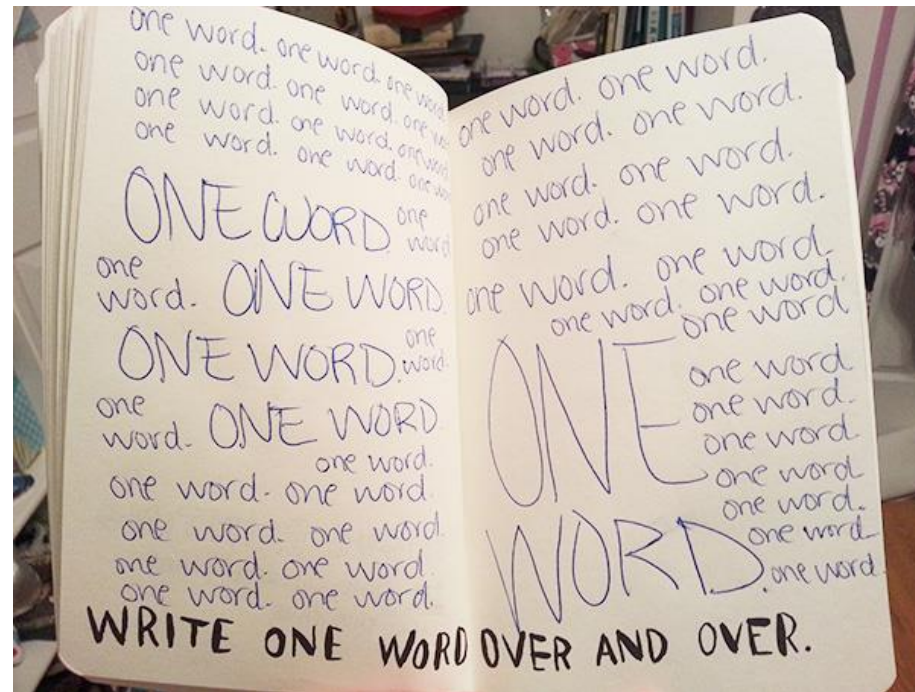 one word. one word. one word.
one word. one word. one word.
one word. one word. one word.
one word. one word. one word
ONE WORD. one word
one word. ONE WORD.
ONE WORD. one word.
one word. ONE WORD
one word.
one word. one word.
one word. one word.
one word. one word.
one word. one word.
one word. one word.
one word. one word.
one word. one word.
one word. one word.
one word. one word.
one word. one word.
one word
ONE
one word
one word.
one word.
one word
one word.
WORD.
one word.
one word.
WRITE ONE WORD OVER AND OVER.